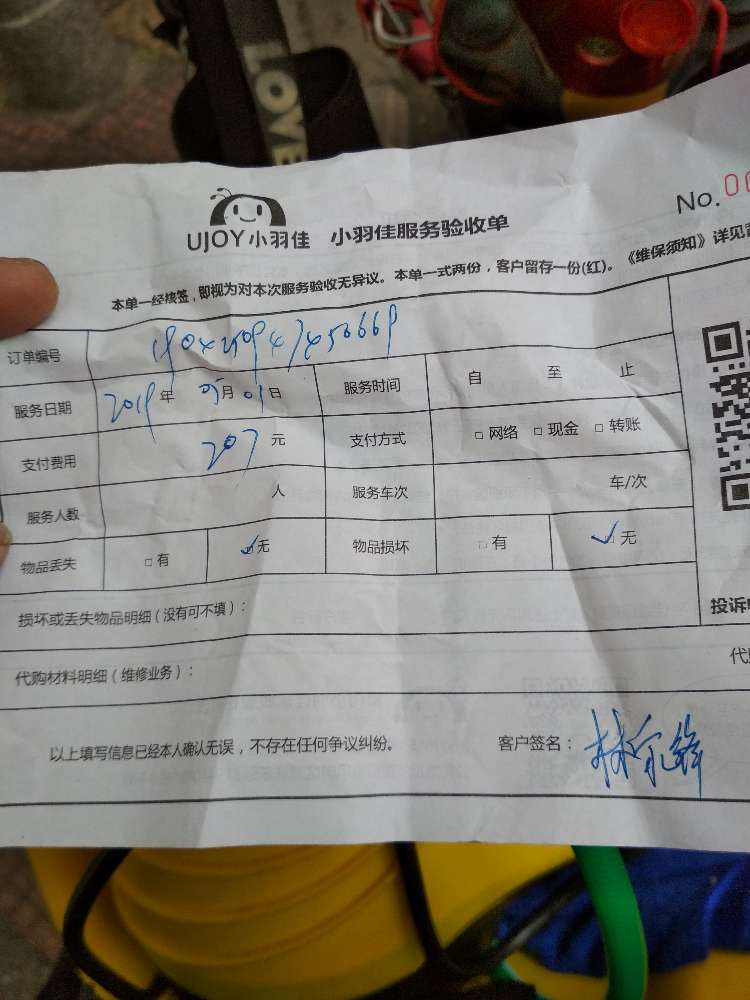 LOVE
UJOY小羽佳 小羽佳服务验收单
No.00
本单一经核签，即视为对本次服务验收无异议。本单一式两份，客户留存一份(红)。《维保须知》详见
订单编号
服务日期 2019年 05月 01日 服务时间 自 至 止
支付费用 207元 支付方式 □网络 □现金 □转账
服务人数 人 服务车次 车/次
物品丢失 □有 ☑无 物品损坏 □有 ☑无
损坏或丢失物品明细（没有可不填）：
投诉
代购材料明细（维修业务）：
代
以上填写信息已经本人确认无误，不存在任何争议纠纷。 客户签名：